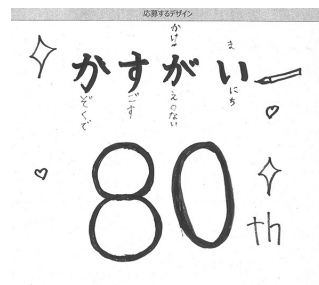 応募するデザイン
かけ
ま
かすがい
ぞくで
ごす
えのない
にち
80th